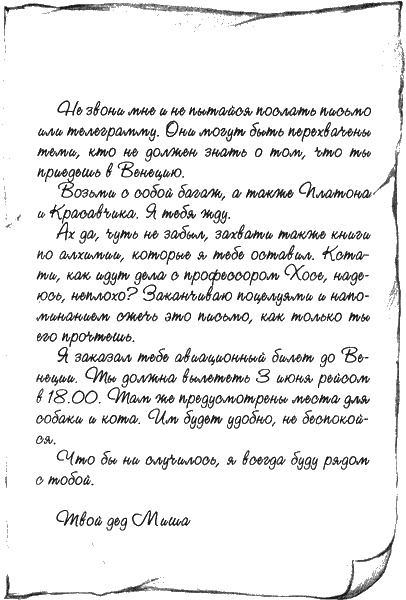 Не звони мне и не пытайся послать письмо
или телеграмму. Они могут быть перехвачены
теми, кто не должен знать о том, что ты
приедешь в Венецию.
Возьми с собой багаж, а также Платона
и Красавчика. Я тебя жду.
Ах да, чуть не забыл, захвати также книги
по алхимии, которые я тебе оставил. Кста-
ти, как идут дела с профессором Хосе, наде-
юсь, неплохо? Заканчиваю поцелуями и напо-
минанием сжечь это письмо, как только ты
его прочтешь.
Я заказал тебе авиационный билет до Ве-
неции. Ты должна вылететь 3 июня рейсом
в 18.00. Там же предусмотрены места для
собаки и кота. Им будет удобно, не беспокой-
ся.
Что бы ни случилось, я всегда буду рядом
с тобой.
Твой дед Миша